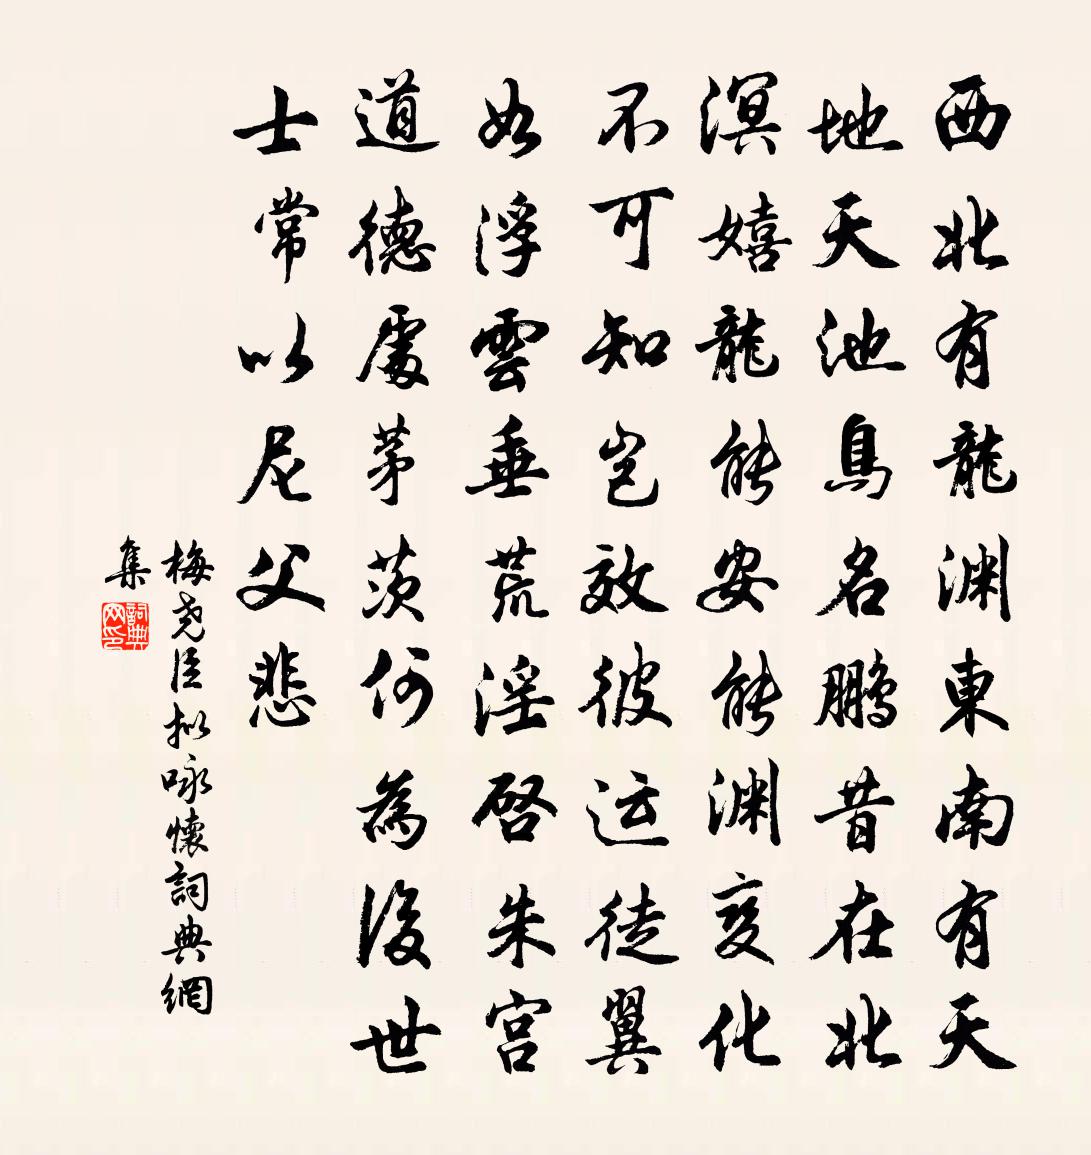 西北有龍淵東南有天
地天池鳥名鵬昔在北
溟嬉龍能安能淵变化
不可知豈效彼运徒翼
如浮雲垂荒淫啓朱宫
道德處茅茨何為後世
士常以尼父悲
梅尧臣拟咏懷詞典網
集
詞典
网印